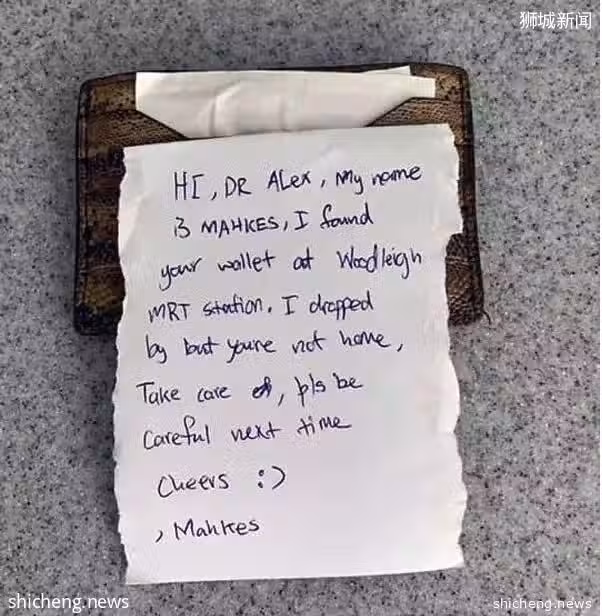 狮城新闻
HI, DR ALex, My name
is MAHKES, I found
your wallet at Woodleigh
MRT station. I dropped
by but you're not home,
Take care, pls be
careful next time
Cheers :)
, Mahkes
shicheng.news
shicheng.news